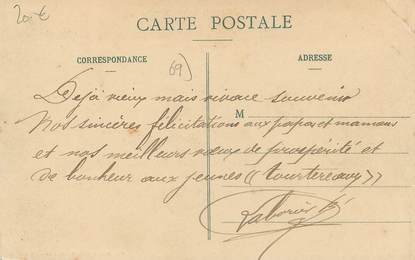 20.€
CARTE POSTALE
CORRESPONDANCE
69)
ADRESSE
Déjà vieux mais vivace souvenir
M
Nos sincères félicitations aux papas et mamans
et nos meilleurs vœux de prospérité et
de bonheur aux jeunes « tourtereaux »